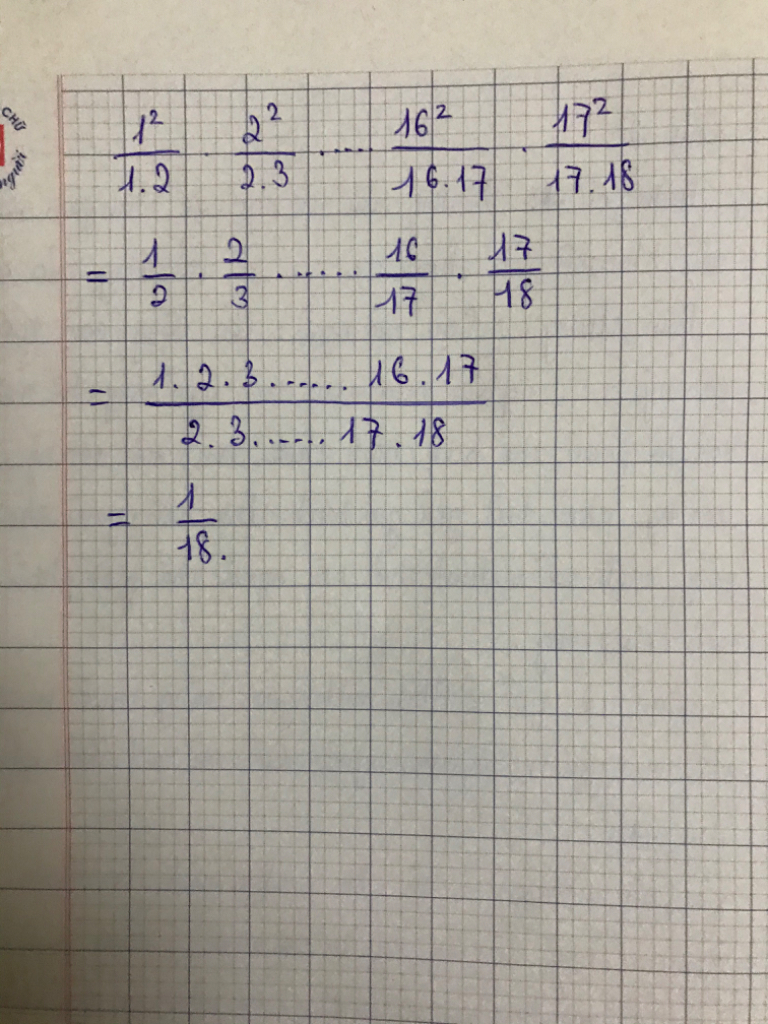 CHỮ
người
1²/1.2 . 2²/2.3 ..... 16²/16.17 . 17²/17.18
= 1/2 . 2/3 ....... 16/17 . 17/18
= 1.2.3....... 16.17/2.3....... 17.18
= 1/18.